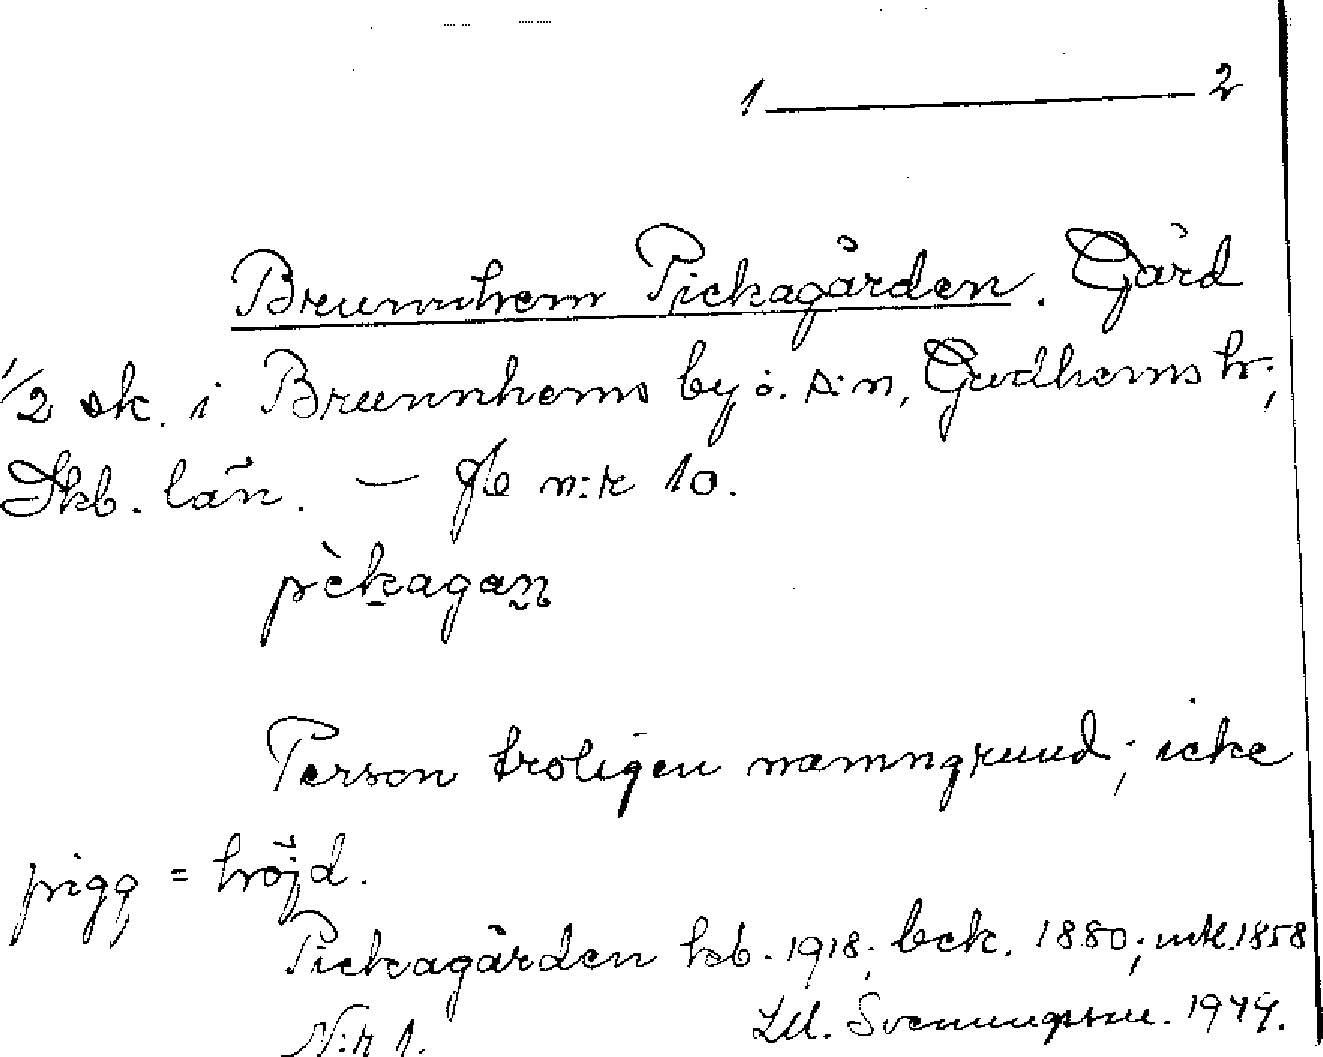 1 ——— 2
Brunnhem Pickagården. Gård
1/2 sk. i Brunnhems by o. s:n, Gudhems hr;
Skb. län. — Je n:r 10.
pèkagan
Person troligen namngrund; icke
pigg = höjd.
Pickagården hsb. 1918; beck. 1880; mtl. 1858
N:r 1. Svenungsson. 1949.